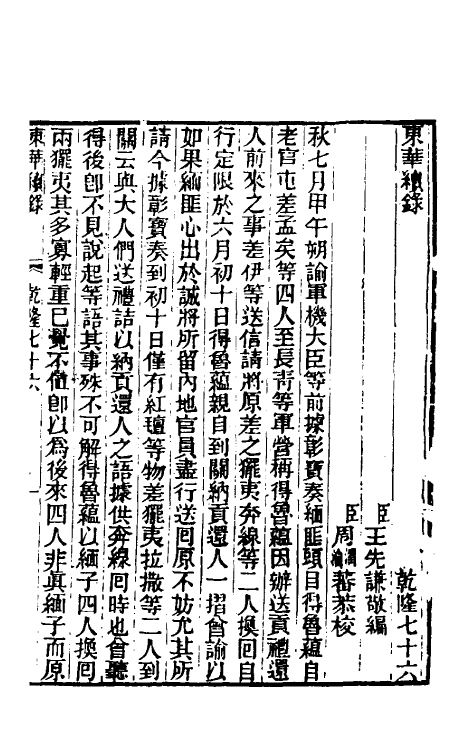 東華續錄
乾隆七十六
臣王先謙敬編
臣周潤蕃恭校
秋七月甲午朔諭軍機大臣等前據彰寶奏緬匪頭目得魯蘊自
老官屯差孟矣等四人至長青等軍營稱得魯蘊因辦送貢禮還
人前來之事差伊等送信請將原差之擺夷奔線等二人換回自
行定限於六月初十日得魯蘊親自到關納貢還人一摺曾諭以
如果緬匪心出於誠將所留內地官員盡行送回原不妨允其所
請今據彰寶奏到初十日僅有紅氊等物差擺夷拉撒等二人到
關云與大人們送禮詰以納貢還人之語據供奔線回時也曾聽
得後卽不見說起等語其事殊不可解得魯蘊以緬子四人換回
兩擺夷其多寡輕重已覺不値卽以爲後來四人非眞緬子而原
東華續錄
乾隆七十六
一